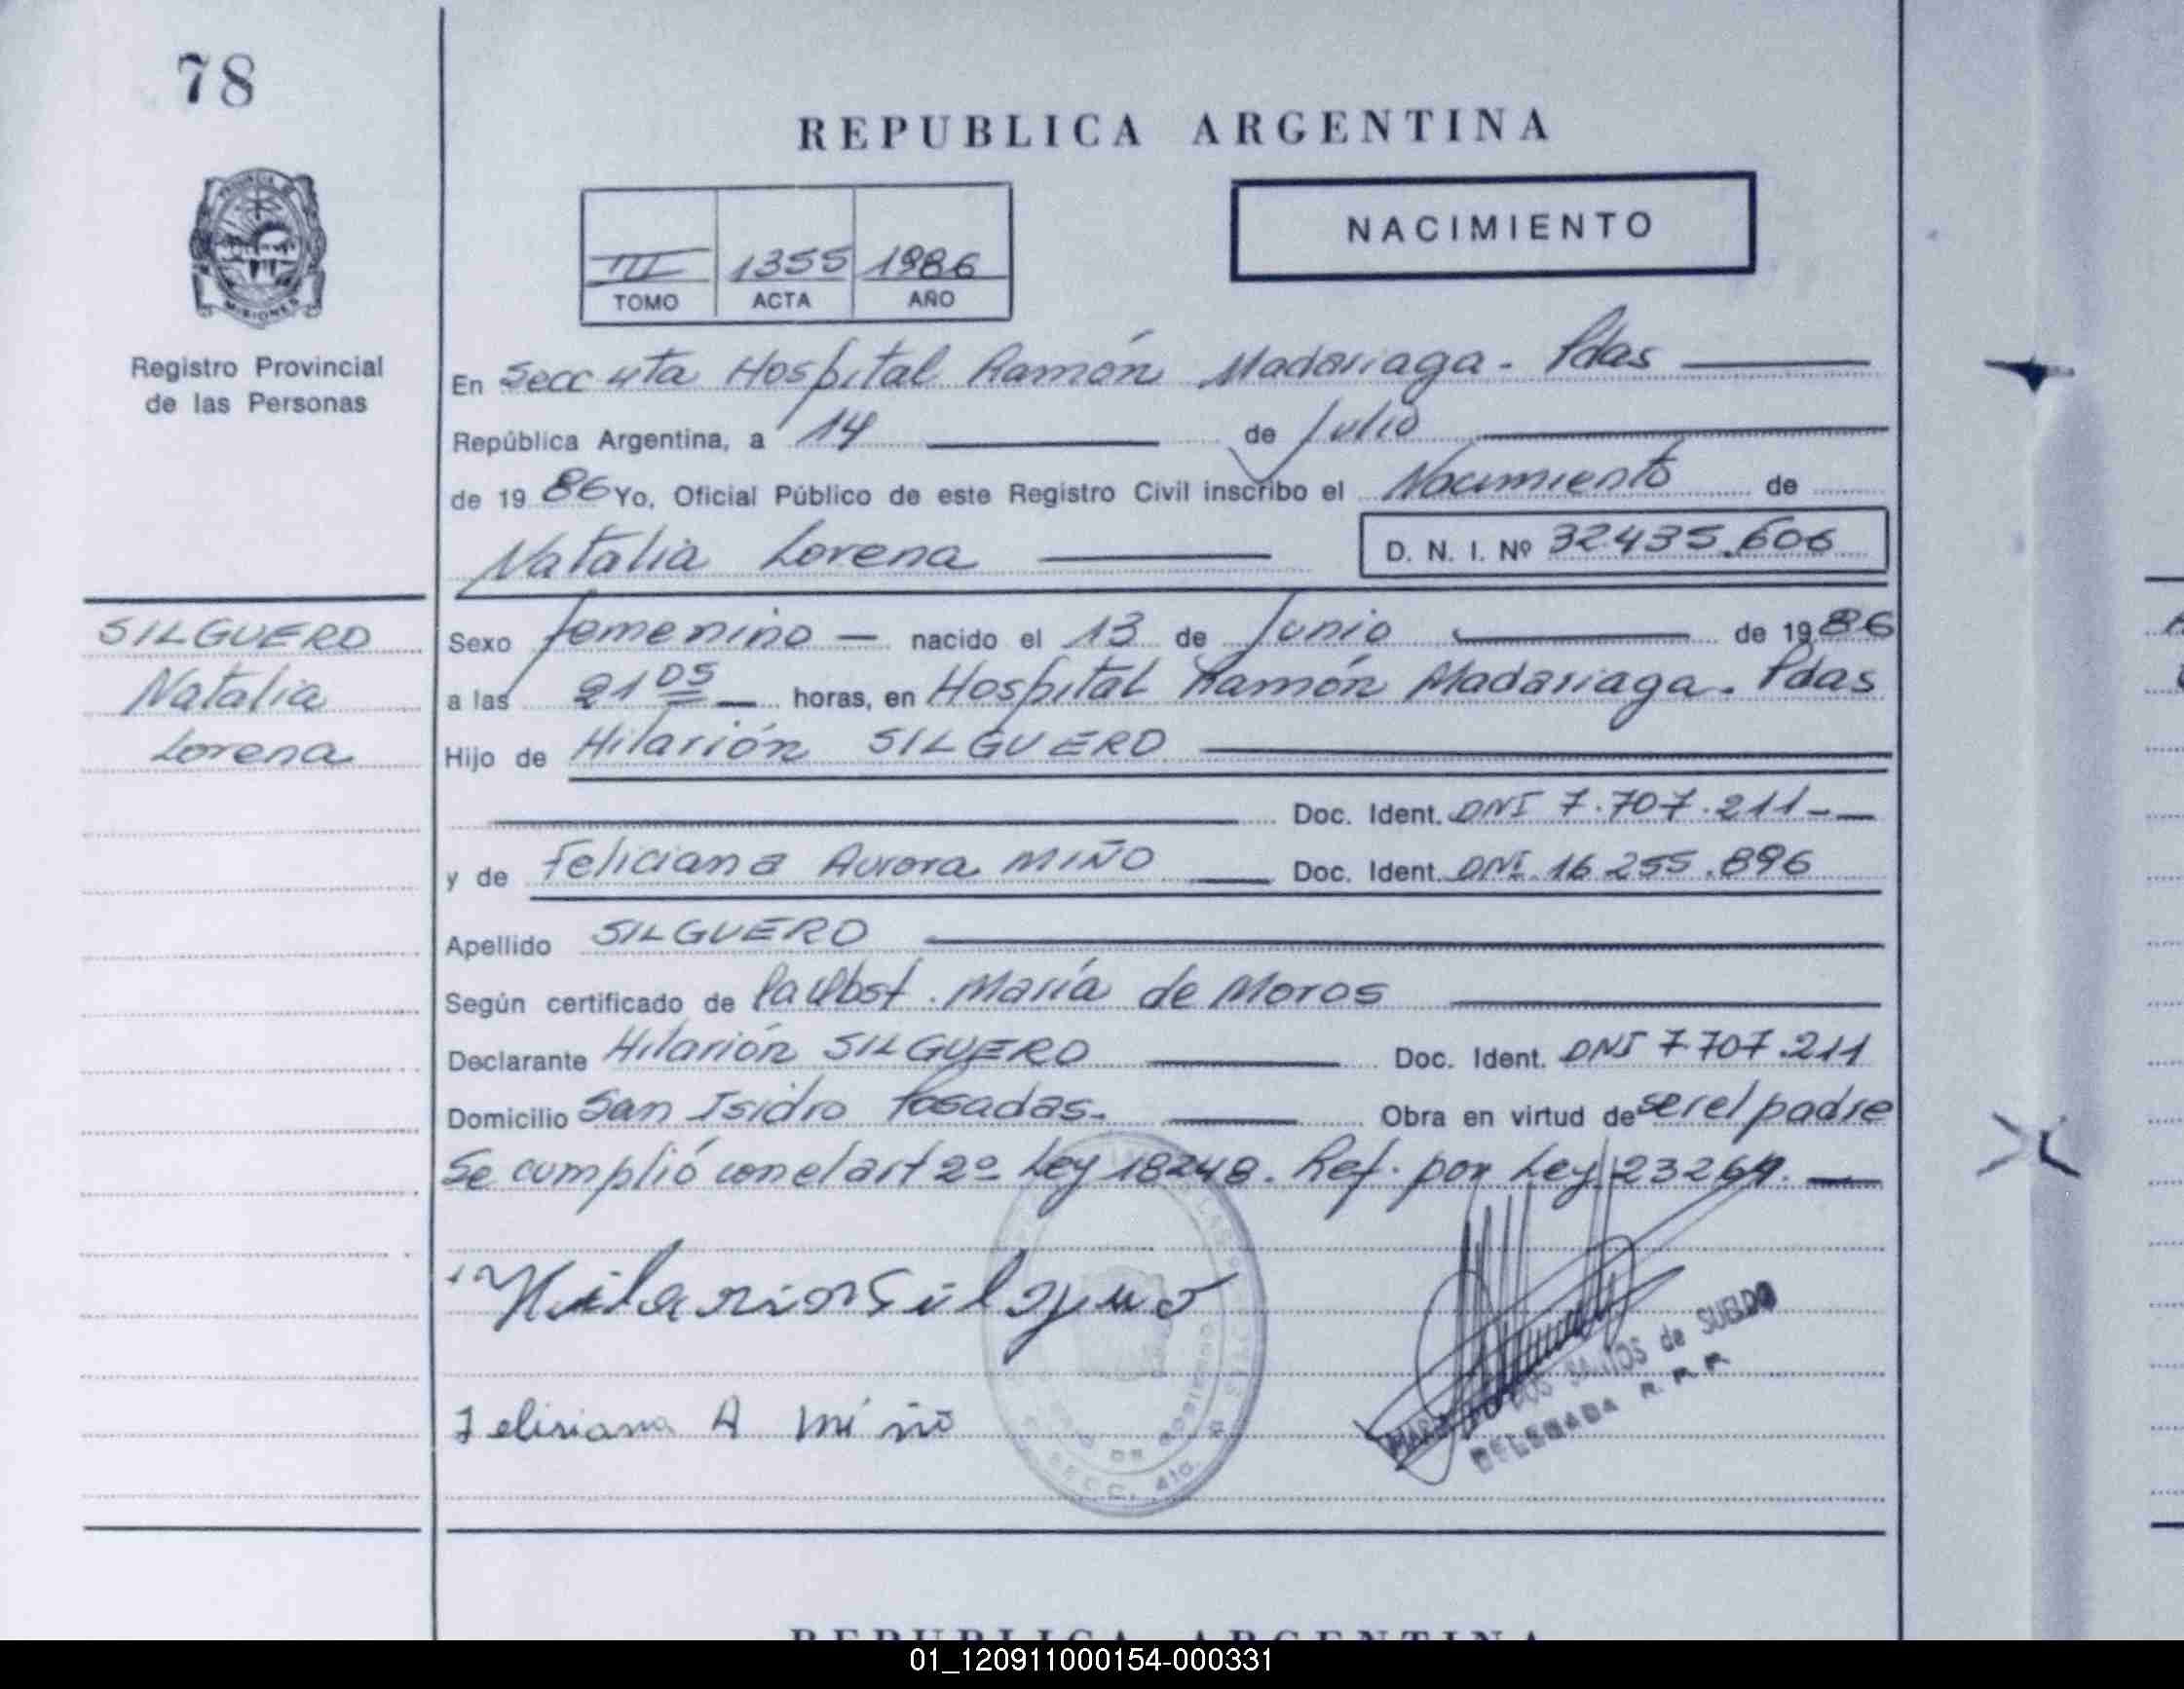 78
REPUBLICA ARGENTINA
NACIMIENTO
III 1355 1986
TOMO ACTA AÑO
PROVINCIA DE MISIONES
Registro Provincial
de las Personas
En Secc 4ta Hospital Ramón Madariaga - Pdas
República Argentina, a 14 de Julio
de 1986 Yo, Oficial Público de este Registro Civil inscribo el Nacimiento de
Natalia Lorena D. N. I. Nº 32435.606
SILGUERO
Natalia
Lorena
Sexo femenino — nacido el 13 de Junio de 1986
a las 21 05 horas, en Hospital Ramón Madariaga. Pdas
Hijo de Hilarión SILGUERO
Doc. Ident. DNI 7.707.211
y de Feliciana Aurora MIÑO Doc. Ident. DNI 16 255.896
Apellido SILGUERO
Según certificado de la Obst. María de Moros
Declarante Hilarión SILGUERO Doc. Ident. DNI 7 707.211
Domicilio San Isidro Posadas. Obra en virtud de ser el padre
Se cumplió con el art 2º Ley 18248. Ref. por Ley 23264.
Hilarion Silguero
Felisiana A miño
DOS SANTOS de SUELDO
DELEGADA R. P. P.
SECC. 4ta.
REPUBLICA ARGENTINA
01_120911000154-000331